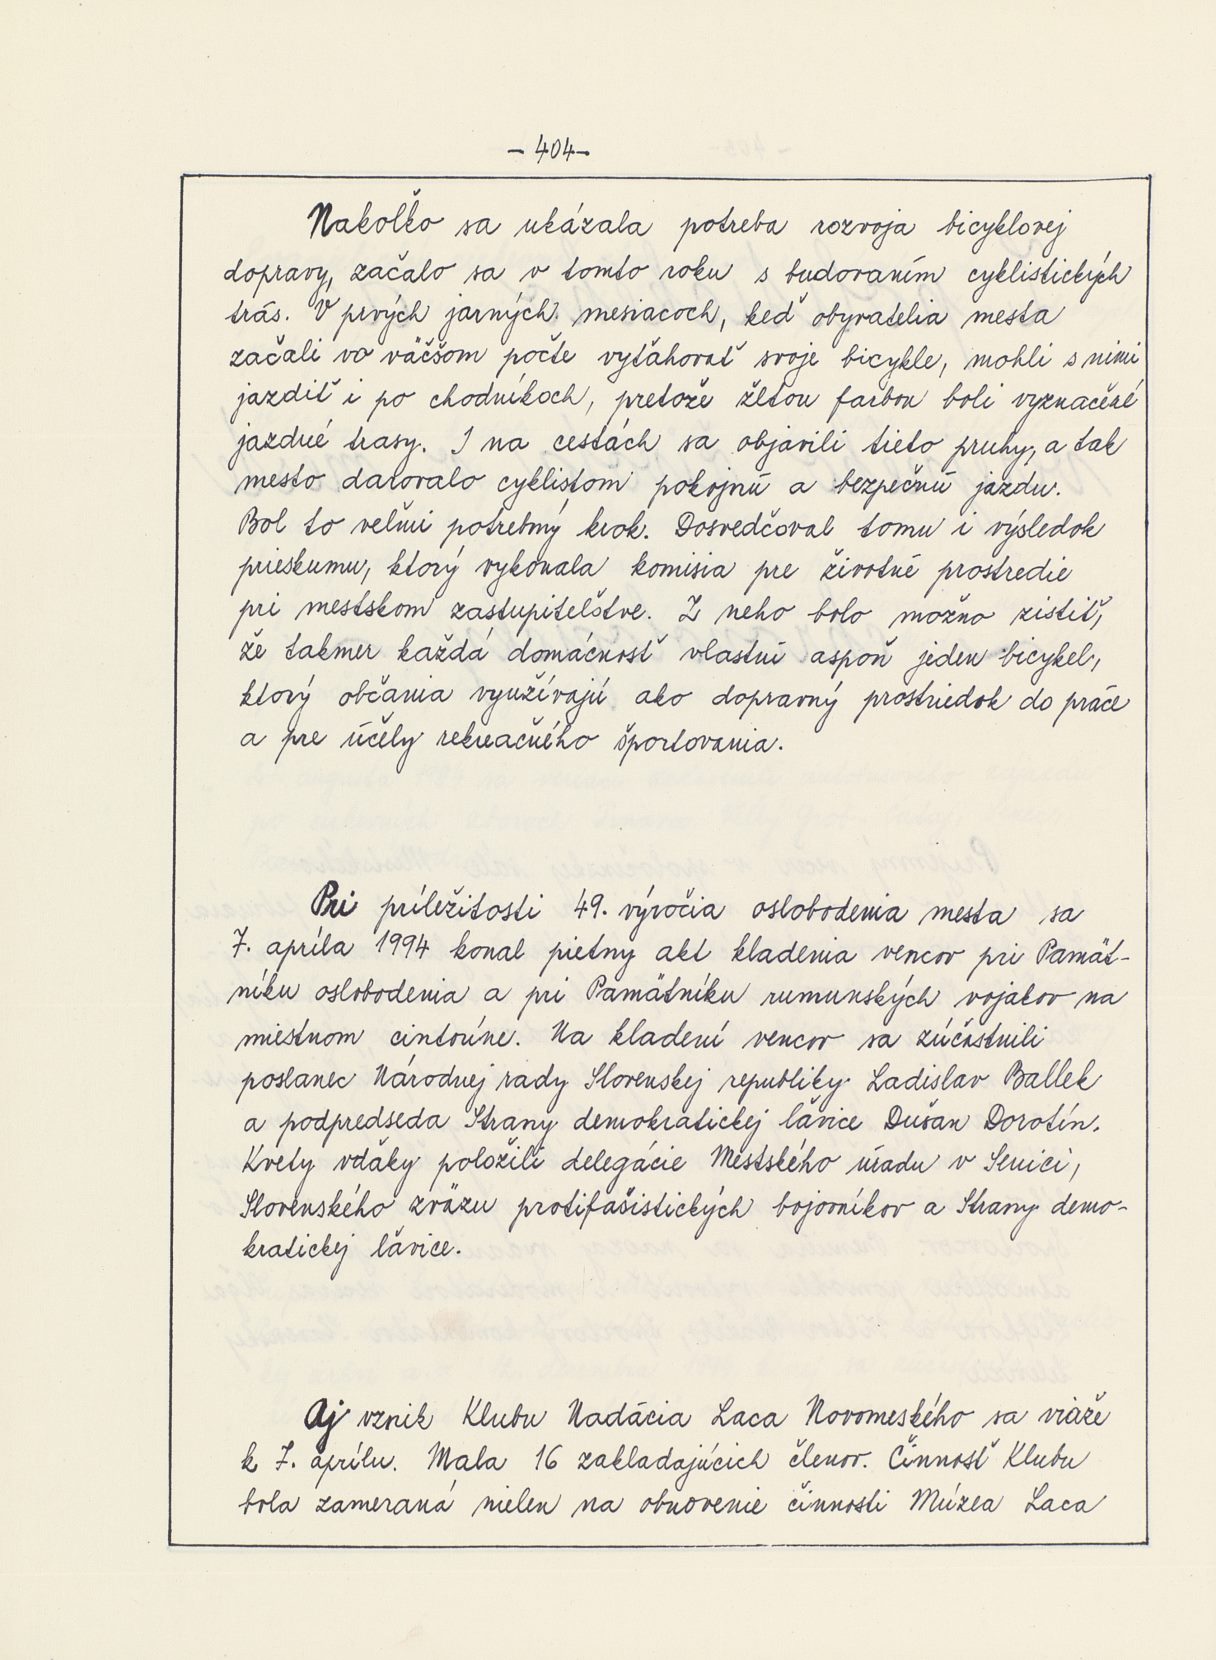 - 404 -
Nakoľko sa ukázala potreba rozvoja bicyklovej
dopravy, začalo sa v tomto roku s budovaním cyklistických
trás. V prvých jarných mesiacoch, keď obyvatelia mesta
začali vo väčšom počte vyťahovať svoje bicykle, mohli s nimi
jazdiť i po chodníkoch, pretože žltou farbou boli vyznačené
jazdné trasy. I na cestách sa objavili tieto pruhy, a tak
mesto darovalo cyklistom pokojnú a bezpečnú jazdu.
Bol to veľmi potrebný krok. Dosvedčoval tomu i výsledok
prieskumu, ktorý vykonala komisia pre životné prostredie
pri mestskom zastupiteľstve. Z neho bolo možno zistiť,
že takmer každá domácnosť vlastní aspoň jeden bicykel,
ktorý občania využívajú ako dopravný prostriedok do práce
a pre účely rekreačného športovania.
Pri príležitosti 49. výročia oslobodenia mesta sa
7. apríla 1994 konal pietny akt kladenia vencov pri Pamät-
níku oslobodenia a pri Pamätníku rumunských vojakov na
miestnom cintoríne. Na kladení vencov sa zúčastnili
poslanec Národnej rady Slovenskej republiky Ladislav Ballek
a podpredseda Strany demokratickej ľavice Dušan Dorotín.
Kvety vďaky položili delegácie Mestského úradu v Senici,
Slovenského zväzu protifašistických bojovníkov a Strany demo-
kratickej ľavice.
Aj vznik Klubu Nadácia Laca Novomeského sa viaže
k 7. aprílu. Mala 16 zakladajúcich členov. Činnosť Klubu
bola zameraná nielen na obnovenie činnosti Múzea Laca